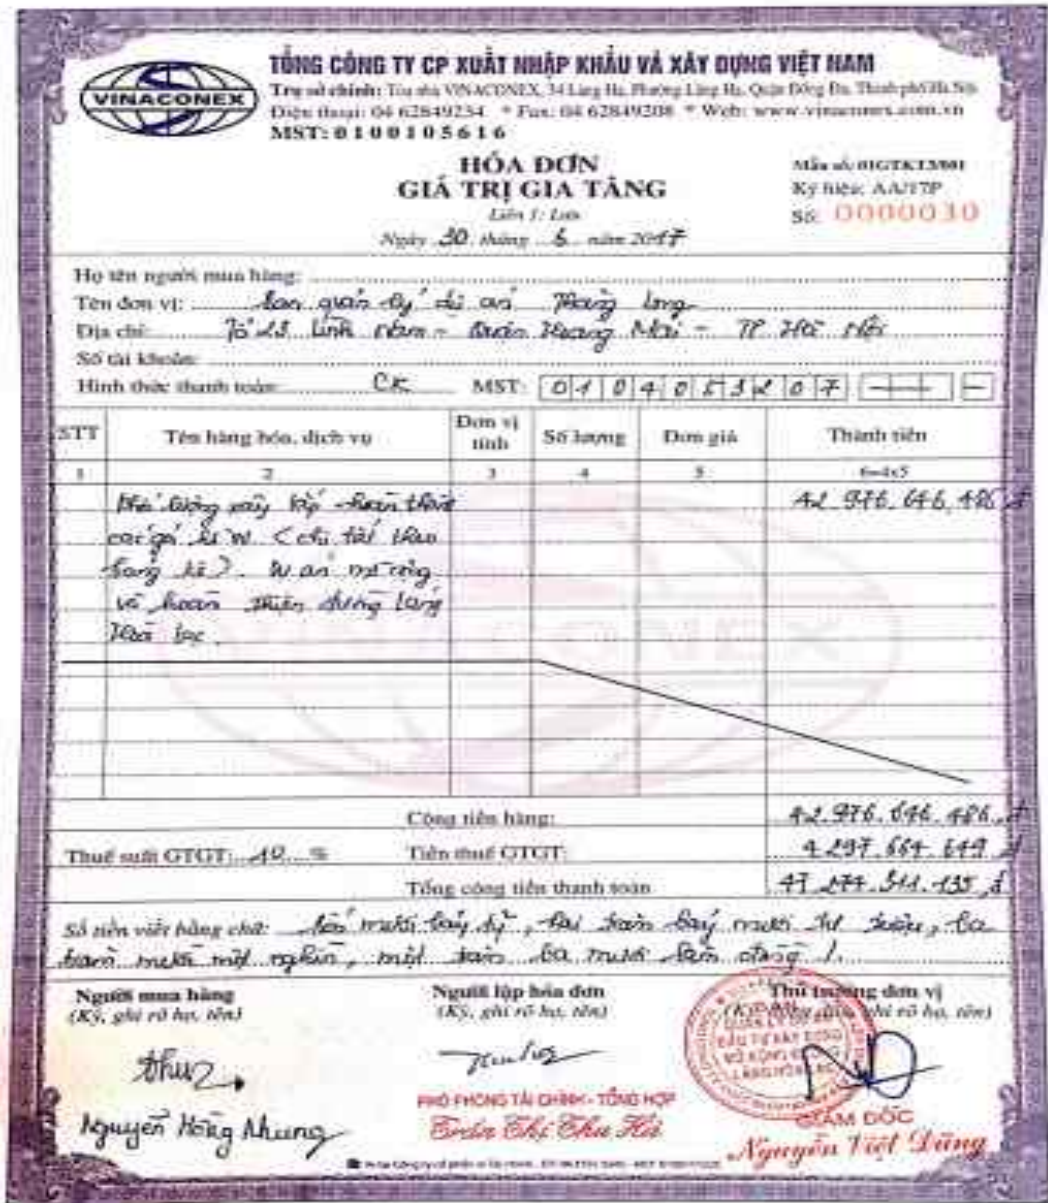 VINACONEX
TỔNG CÔNG TY CP XUẤT NHẬP KHẨU VÀ XÂY DỰNG VIỆT NAM
Trụ sở chính: Tòa nhà VINACONEX, 34 Láng Hạ, Phường Láng Hạ, Quận Đống Đa, Thành phố Hà Nội
Điện thoại: 04 62849234 * Fax: 04 62849208 * Web: www.vinaconex.com.vn
MST: 0100105616
HÓA ĐƠN
GIÁ TRỊ GIA TĂNG
Liên 1: Lưu
Ngày 30 tháng 6 năm 2017
Mẫu số: 01GTKT3/001
Ký hiệu: AA/17P
Số: 0000030
Họ tên người mua hàng:
Tên đơn vị: Ban quản lý dự án Thăng Long
Địa chỉ: Tổ 23 Lĩnh Nam - Quận Hoàng Mai - TP Hà Nội
Số tài khoản:
Hình thức thanh toán: CK MST: 0104053207
STT Tên hàng hóa, dịch vụ Đơn vị tính Số lượng Đơn giá Thành tiền
1 2 3 4 5 6=4x5
Khối lượng xây lắp hoàn thành 42.976.646.486 đ
các gói (chi tiết theo
bảng kê). Dự án mở rộng
và hoàn thiện đường Láng
Hòa Lạc
Cộng tiền hàng: 42.976.646.486 đ
Thuế suất GTGT: 10 % Tiền thuế GTGT: 4.297.664.649 đ
Tổng cộng tiền thanh toán 47.274.311.135 đ
Số tiền viết bằng chữ: Bốn mươi bảy tỷ, hai trăm bảy mươi tư triệu, ba
trăm mười một nghìn, một trăm ba mươi lăm đồng /.
Người mua hàng
(Ký, ghi rõ họ, tên)
Nguyễn Hồng Nhung
Người lập hóa đơn
(Ký, ghi rõ họ, tên)
PHÓ PHÒNG TÀI CHÍNH - TỔNG HỢP
Trần Thị Thu Hà
Thủ trưởng đơn vị
(Ký, đóng dấu, ghi rõ họ, tên)
GIÁM ĐỐC
Nguyễn Việt Dũng